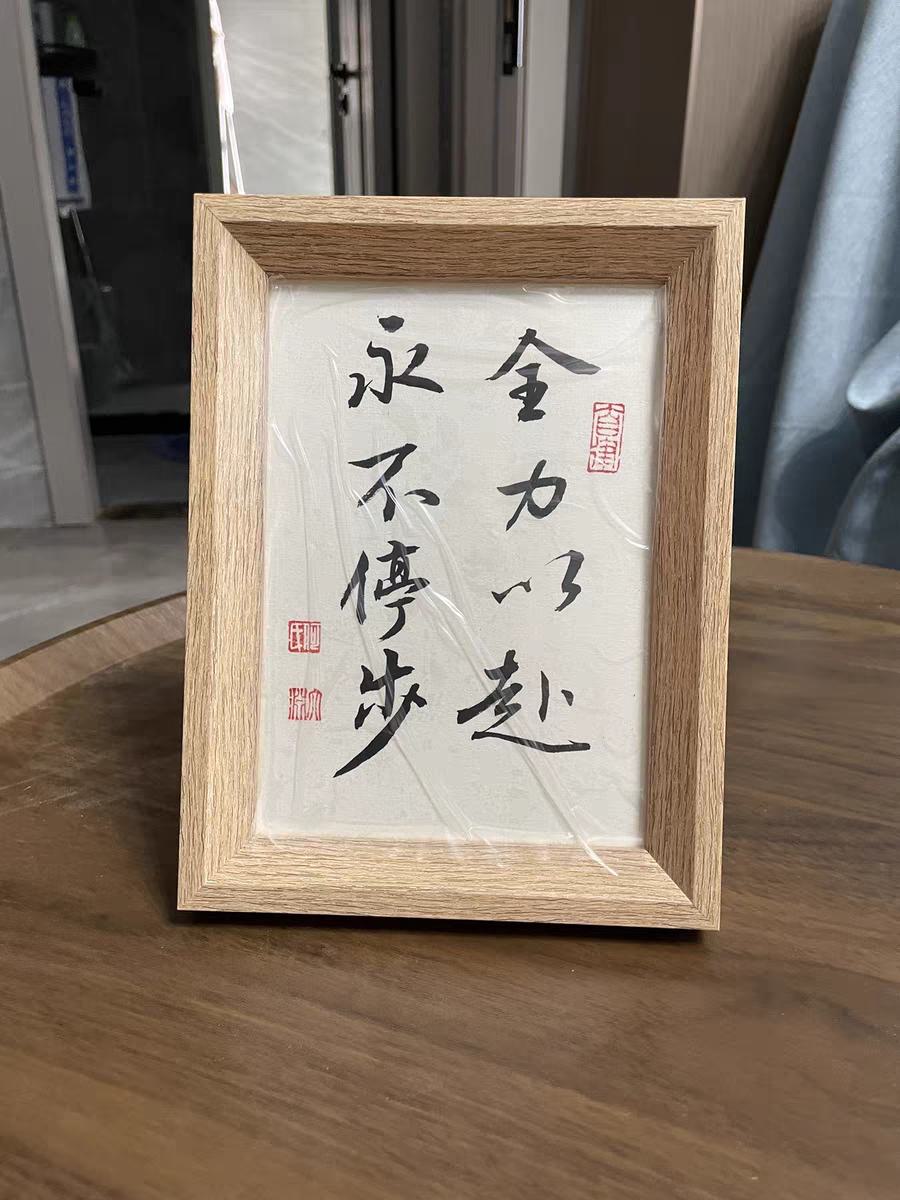 全力以赴
永不停步